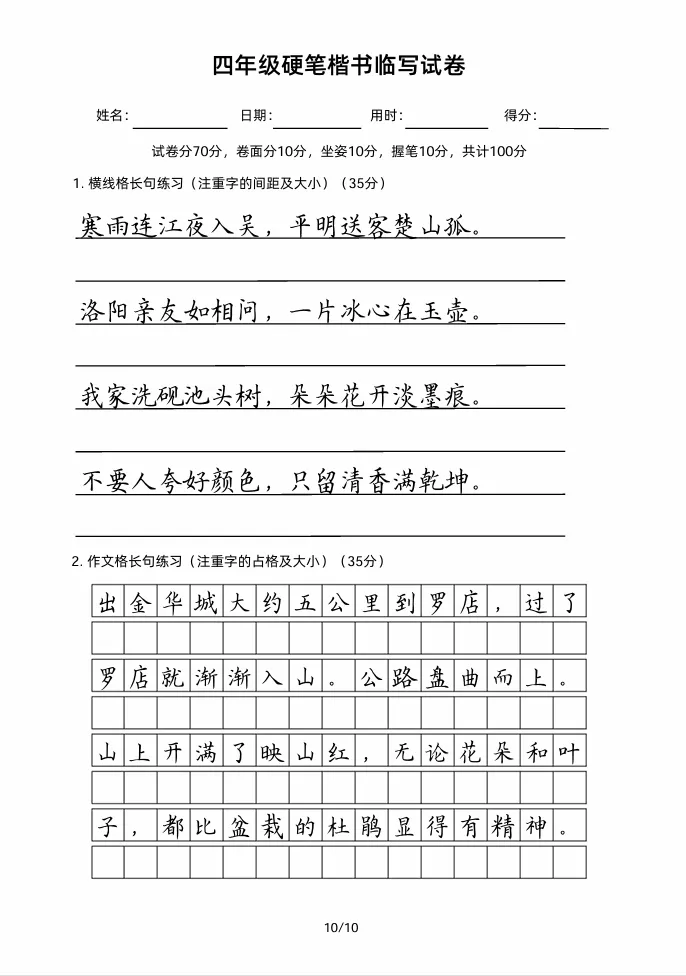 四年级硬笔楷书临写试卷
姓名：________ 日期：________ 用时：________ 得分：________
试卷分70分，卷面分10分，坐姿10分，握笔10分，共计100分
1. 横线格长句练习（注重字的间距及大小）（35分）
寒雨连江夜入吴，平明送客楚山孤。
洛阳亲友如相问，一片冰心在玉壶。
我家洗砚池头树，朵朵花开淡墨痕。
不要人夸好颜色，只留清香满乾坤。
2. 作文格长句练习（注重字的占格及大小）（35分）
出金华城大约五公里到罗店，过了
罗店就渐渐入山。公路盘曲而上。
山上开满了映山红，无论花朵和叶
子，都比盆栽的杜鹃显得有精神。
10/10